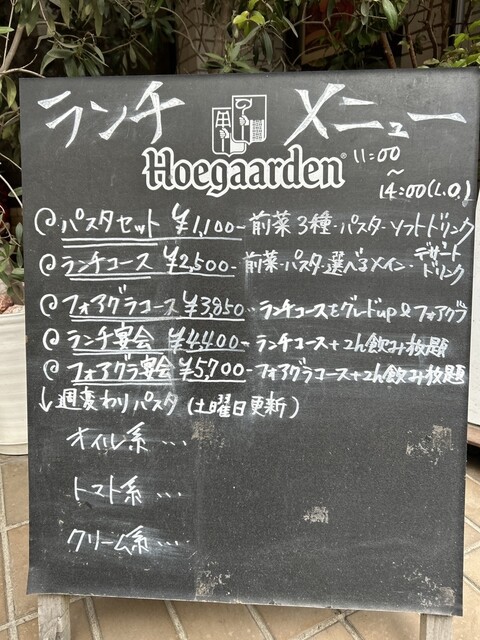 ランチ メニュー
Hoegaarden
11:00
～
14:00(L.O.)
@パスタセット ¥1,100- 前菜3種・パスタ・ソフトドリンク
@ランチコース ¥2,500- 前菜・パスタ・選べるメイン・デザート ドリンク
@フォアグラコース ¥3,850- ランチコースをグレードup&フォアグラ
@ランチ宴会 ¥4,400- ランチコース+2h飲み放題
@フォアグラ宴会 ¥5,700- フォアグラコース+2h飲み放題
↓週変わりパスタ(土曜日更新)
オイル系…
トマト系…
クリーム系…